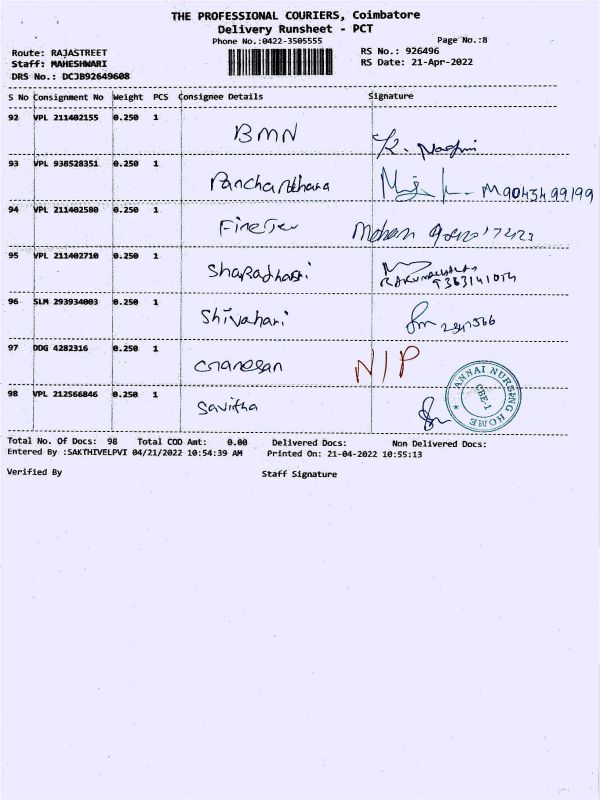 THE PROFESSIONAL COURIERS, Coimbatore
Delivery Runsheet - PCT
Phone No.:0422-3505555 Page No.:8
Route: RAJASTREET RS No.: 926496
Staff: MAHESHWARI RS Date: 21-Apr-2022
DRS No.: DCJB92649608
S No Consignment No Weight PCS Consignee Details Signature
92 VPL 211402155 0.250 1 BMN
93 VPL 938528351 0.250 1 M9043499199
94 VPL 211402580 0.250 1 Mohan
95 VPL 211402710 0.250 1
96 SLM 293934003 0.250 1 Shivahari
97 DDG 4282316 0.250 1 Ganesan N/P
98 VPL 212566846 0.250 1 Savitha
ANNAI NURSING HOME
CBE-1
Total No. Of Docs: 98 Total COD Amt: 0.00 Delivered Docs: Non Delivered Docs:
Entered By :SAKTHIVELPVI 04/21/2022 10:54:39 AM Printed On: 21-04-2022 10:55:13
Verified By Staff Signature